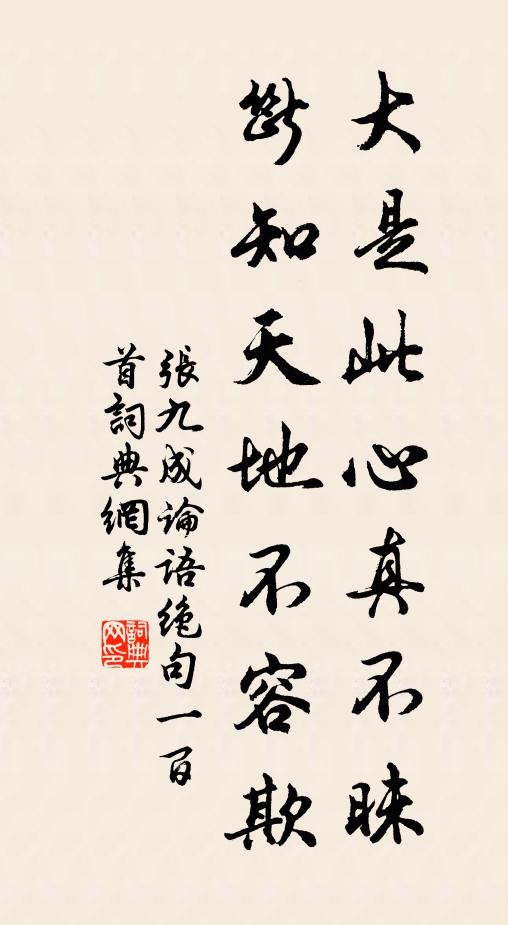 大是此心真不昧
斷知天地不容欺
張九成論語絕句一百
首詞典網集
詞典網印